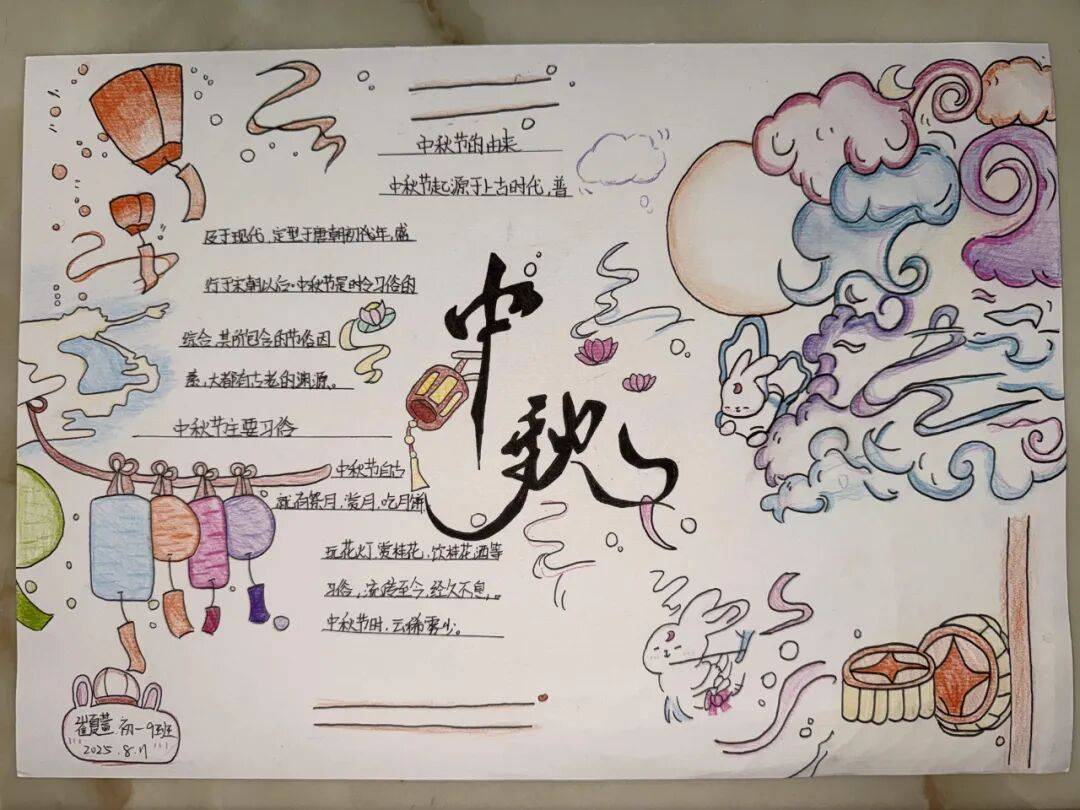 中秋节的由来
中秋节起源于上古时代,普
及于现代,定型于唐朝初代年,盛
行于宋朝以后。中秋节是时令习俗的
综合,其所包含的节俗因
素,大都有古老的渊源。
中秋节主要习俗
中秋节自古
就有祭月,赏月,吃月饼
玩花灯,赏桂花,饮桂花酒等
习俗,流传至今,经久不息。
中秋节时,云稀雾少。
中秋
初一9班
2025.8.17